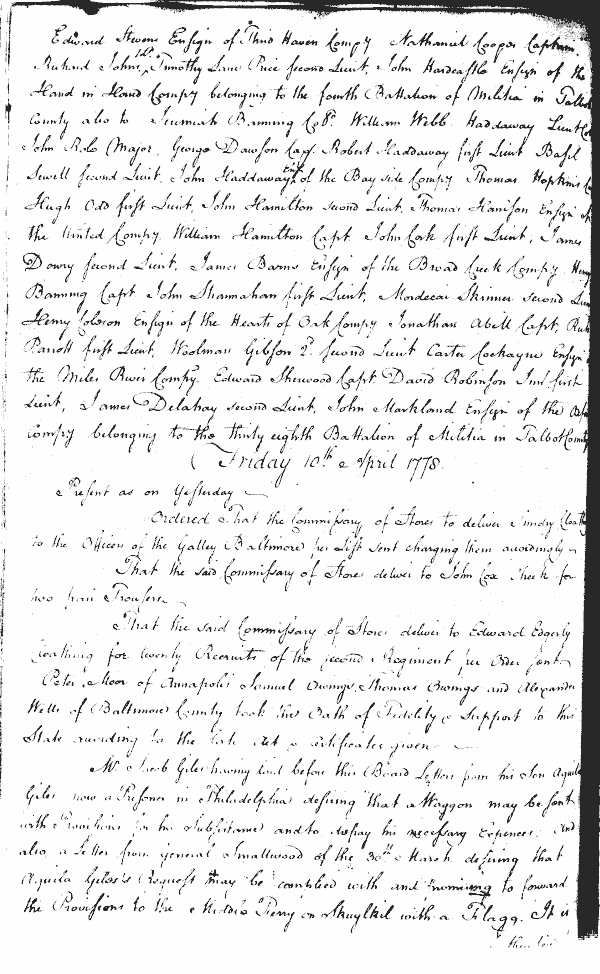 Edward Stevens Ensign of Third Haven Compy Nathaniel Cooper Captain.
Richard Johns 1st, Timothy Lane Price second Lieut, John Hardcastle Ensign of the
Hand in Hand Compy belonging to the fourth Battalion of Militia in Talbot
County also to Jeremiah Banning Col. William Webb Haddaway Lieut Co
John Rolo Major, George Dawson Cap. Robert Haddaway first Lieut Basil
Sewell second Lieut, John Haddaway Ens. of the Bay side Compy Thomas Hopkins C
Hugh Odd first Lieut, John Hamilton second Lieut, Thomas Harrison Ensign of
the United Compy. William Hamilton Capt. John Cook first Lieut, James
Dowry second Lieut, James Barns Ensign of the Broad Creek Compy Henry
Banning Capt John Shannahan first Lieut, Mordecai Skinner second Lieu
Henry Colsson Ensign of the Hearts of Oak Compy Jonathan Abell Capt,
Parrott first Lieut, Woolman Gibson 2d. second Lieut Carter Cockayne Ensign
the Miles River Compy. Edward Sherwood Capt. David Robinson Junr first
Lieut, James Delahay second Lieut, John Markland Ensign of the
Compy belonging to the thirty eighth Battalion of Militia in Talbot County
Friday 10th April 1778.
Present as on Yesterday
Ordered That the Commissary of Stores to deliver Sundry Cloath
to the Officers of the Galley Baltimore per List sent charging them accordingly
That the said Commissary of Stores deliver to John Cox Check for
two pair Trousers
That the said Commissary of Stores deliver to Edward Edgerly
Cloathing for twenty Recruits of the second Regiment per Order sent
Peter Moor of Annapolis Samuel Owings, Thomas Owings and Alexander
Wells of Baltimore County took the Oath of Fidelity & Support to this
State according to the late Act & certificates given
Mr. Jacob Giles having laid before this Board Letters from his Son Aquila
Giles now a Prisoner in Philadelphia desiring that a Waggon may be sent
with Provisions for his Subsistance and to defray his necessary Expences. And
also a Letter from General Smallwood of the 30th March desiring that
Aquila Giles's Request may be complied with and to forward
the Provisions to the Middle Ferry on Skuylkil with a Flagg. It is
therefore